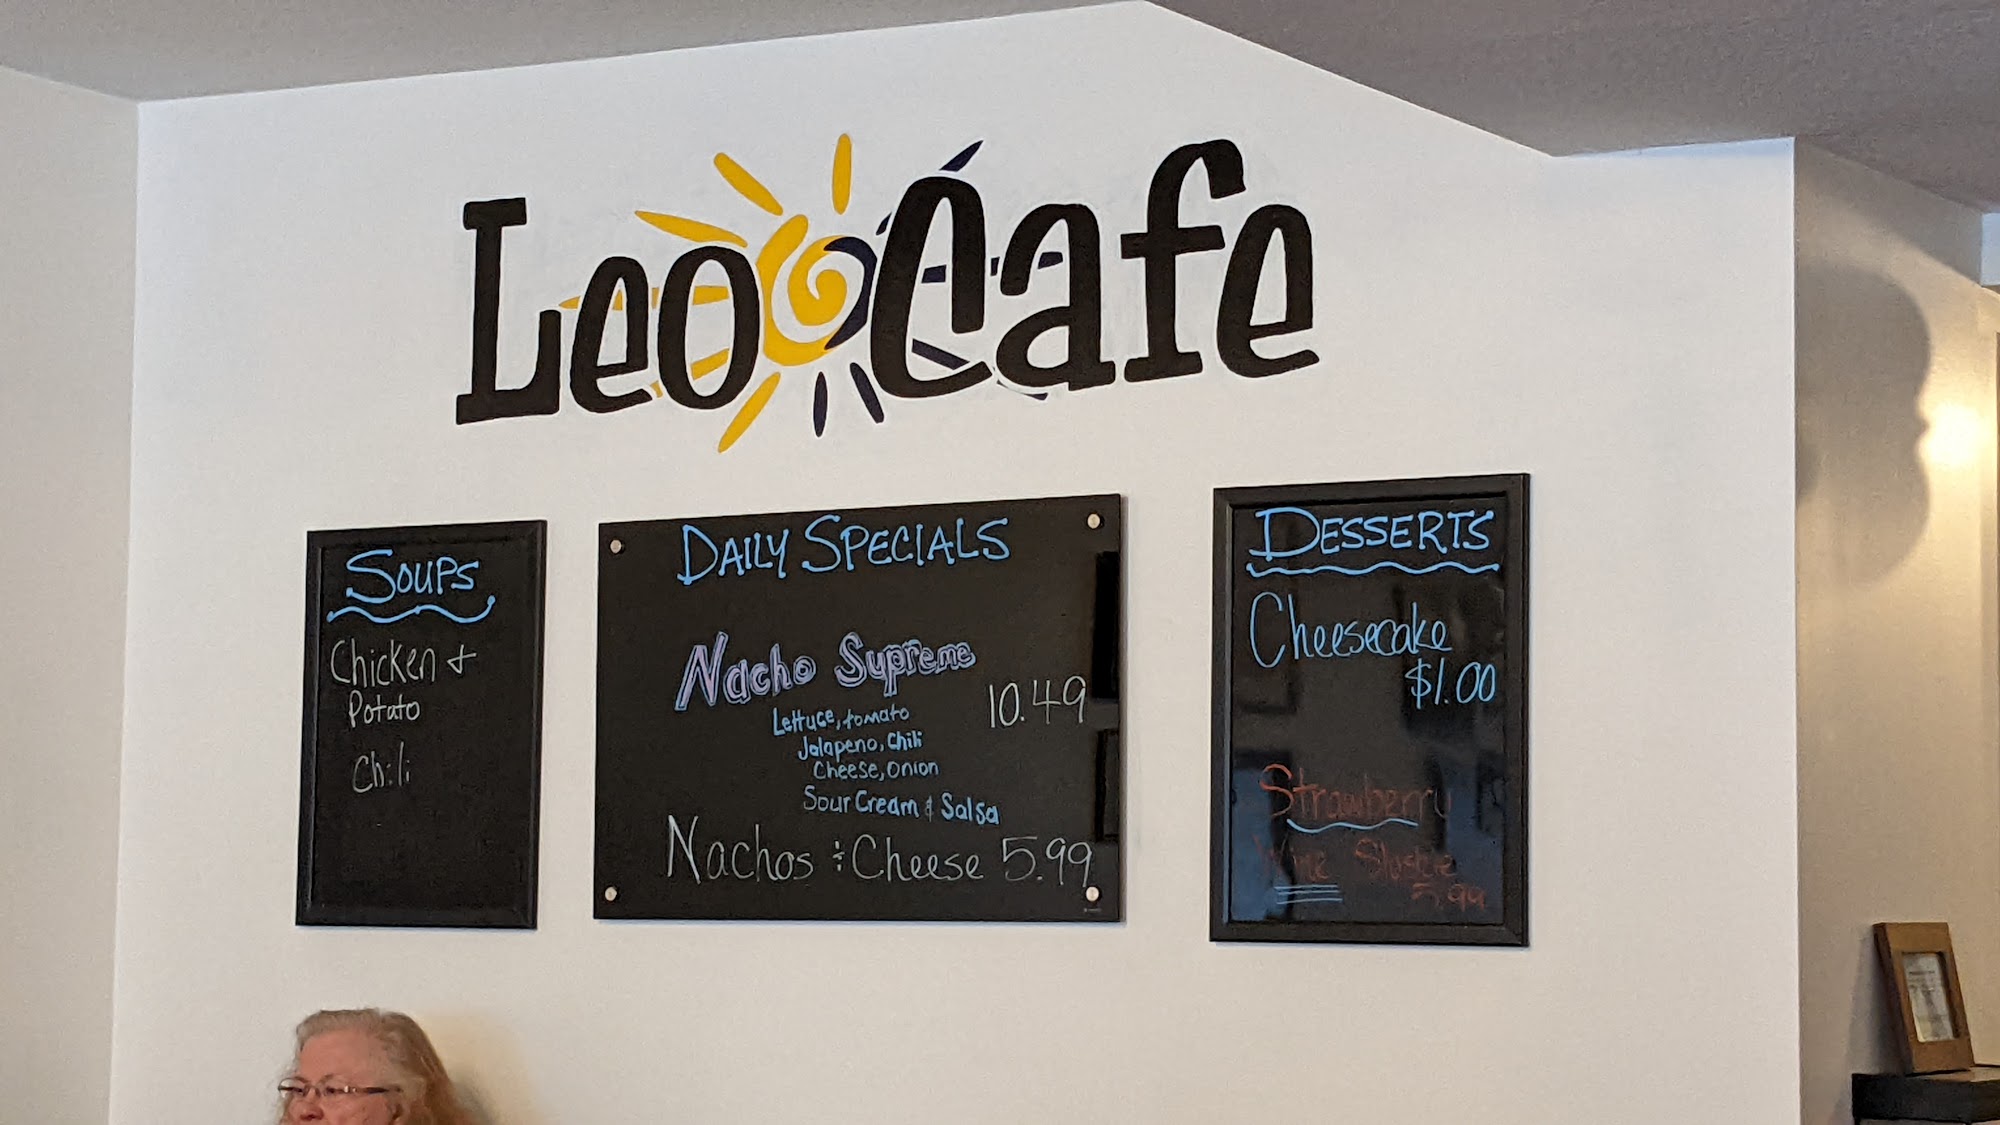 Leo Cafe
SOUPS
Chicken &
Potato
Chili
DAILY SPECIALS
Nacho Supreme
10.49
Lettuce, tomato
Jalapeno, Chili
Cheese, Onion
Sour Cream & Salsa
Nachos & Cheese 5.99
DESSERTS
Cheesecake
$1.00
Strawberry
Wine Slushie
5.99